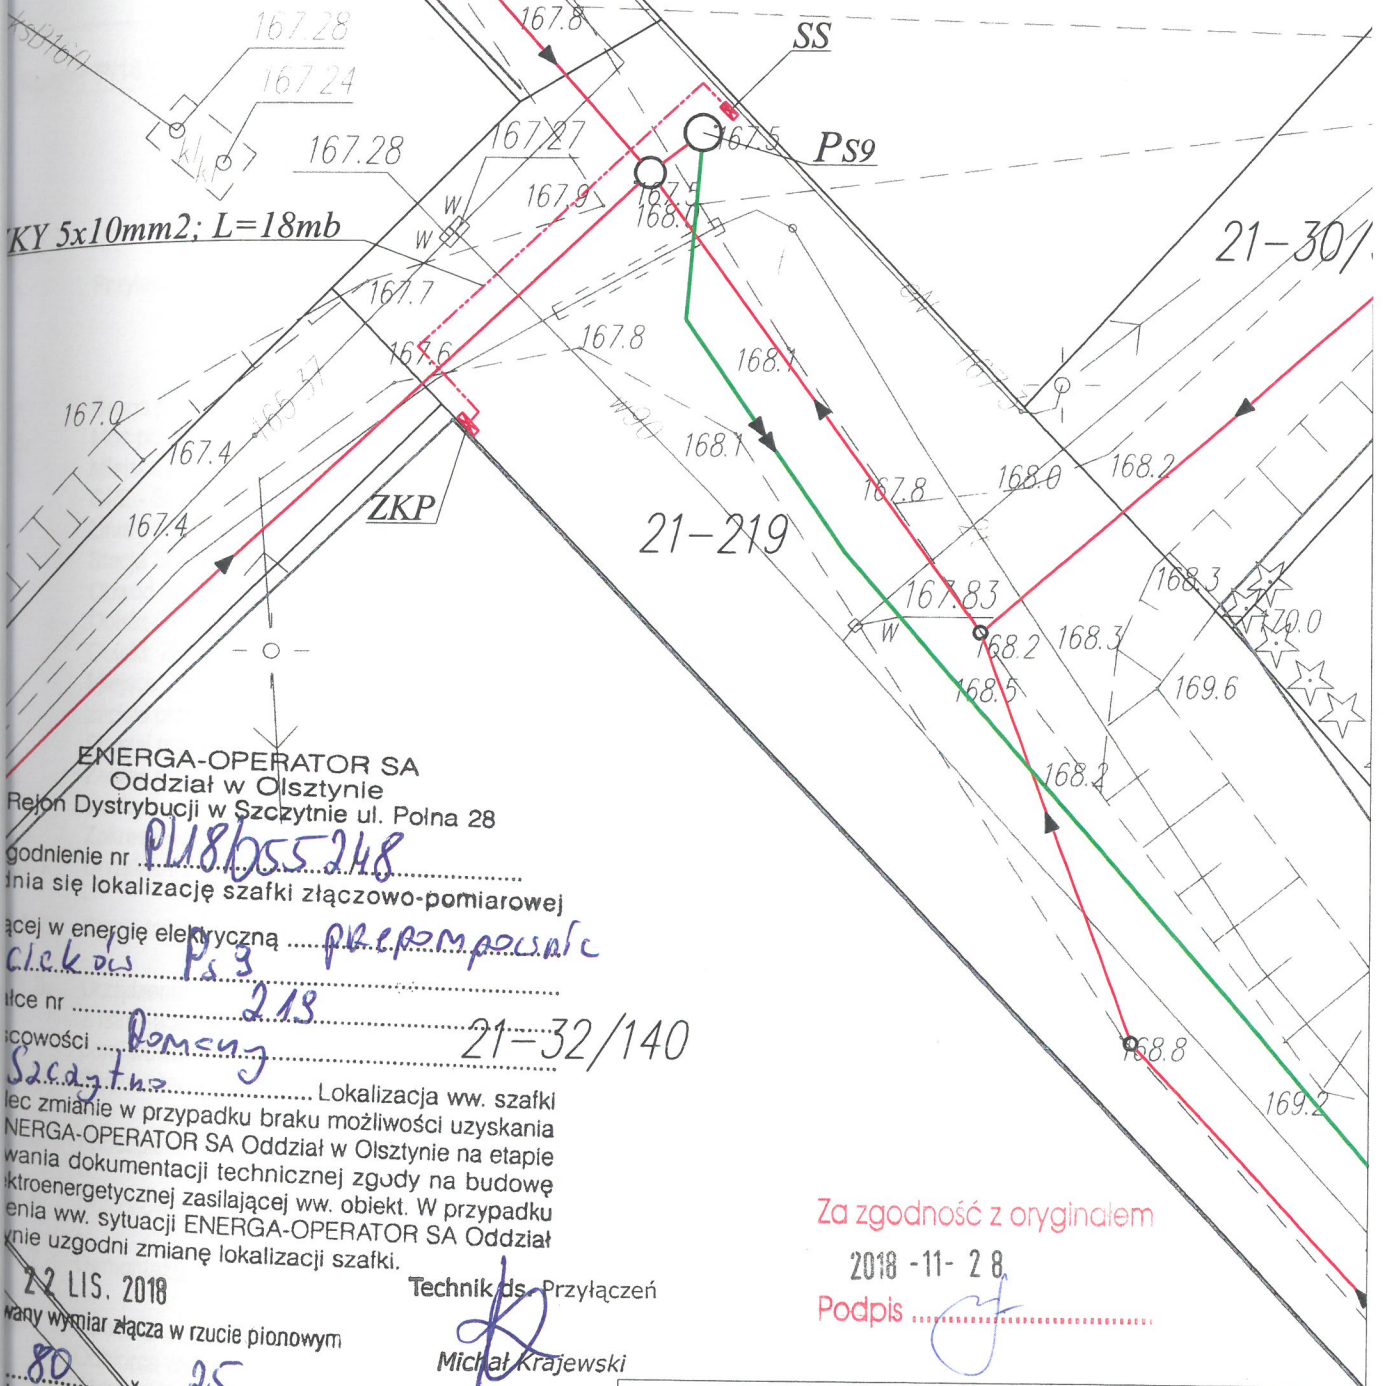 167.28
167.24
167.8
SS
167.28
167.27
167.5
Ps9
167.9
167.5
168.1
KY 5x10mm2; L=18mb
W
W
21-30/
167.7
167.8
167.6
168.1
165.37
w90
167.0
167.4
168.1
167.4
ZKP
167.8
168.0
168.2
21-219
168.3
167.83
W
170.0
168.2
168.3
168.5
169.6
168.2
ENERGA-OPERATOR SA
Oddział w Olsztynie
Rejon Dystrybucji w Szczytnie ul. Polna 28
godnienie nr P/18/055248
nia się lokalizację szafki złączowo-pomiarowej
ącej w energię elektryczną przepompownię
ścieków Ps 9
ałce nr 219
21-32/140
scowości Romany
Szczytno Lokalizacja ww. szafki
lec zmianie w przypadku braku możliwości uzyskania
NERGA-OPERATOR SA Oddział w Olsztynie na etapie
wania dokumentacji technicznej zgody na budowę
ktroenergetycznej zasilającej ww. obiekt. W przypadku
enia ww. sytuacji ENERGA-OPERATOR SA Oddział
ynie uzgodni zmianę lokalizacji szafki.
22 LIS. 2018
Technik ds. Przyłączeń
wany wymiar złącza w rzucie pionowym
80 x 25
Michał Krajewski
168.8
169.2
Za zgodność z oryginałem
2018 -11- 28
Podpis